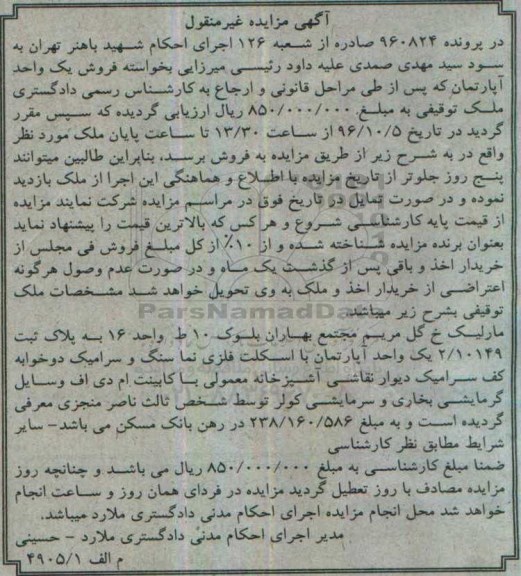 آگهی مزایده غیرمنقول
در پرونده ۹۶۰۸۲۴ صادره از شعبه ۱۲۶ اجرای احکام شهید باهنر تهران به
سود سید مهدی صمدی علیه داود رئیسی میرزایی بخواسته فروش یک واحد
آپارتمان که پس از طی مراحل قانونی و ارجاع به کارشناس رسمی دادگستری
ملک توقیفی به مبلغ ۸۵۰/۰۰۰/۰۰۰ ریال ارزیابی گردیده که سپس مقرر
گردید در تاریخ ۹۶/۱۰/۵ از ساعت ۱۳/۳۰ تا ساعت پایان ملک مورد نظر
واقع در به شرح زیر از طریق مزایده به فروش برسد، بنابراین طالبین میتوانند
پنج روز جلوتر از تاریخ مزایده با اطلاع و هماهنگی این اجرا از ملک بازدید
نموده و در صورت تمایل در تاریخ فوق در مراسم مزایده شرکت نمایند مزایده
از قیمت پایه کارشناسی شروع و هر کس که بالاترین قیمت را پیشنهاد نماید
بعنوان برنده مزایده شناخته شده و از ۱۰٪ از کل مبلغ فروش فی مجلس از
خریدار اخذ و باقی پس از گذشت یک ماه و در صورت عدم وصول هرگونه
اعتراضی از خریدار اخذ و ملک به وی تحویل خواهد شد مشخصات ملک
توقیفی بشرح زیر میباشد.
ParsNamadData
مارلیک خ گل مریم مجتمع بهاران بلوک ۱۰ ط واحد ۱۶ به پلاک ثبت
۲/۱۰۱۴۹ یک واحد آپارتمان با اسکلت فلزی نما سنگ و سرامیک دوخوابه
کف سرامیک دیوار نقاشی آشپزخانه معمولی با کابینت ام دی اف وسایل
گرمایشی بخاری و سرمایشی کولر توسط شخص ثالث ناصر منجزی معرفی
گردیده است و به مبلغ ۲۳۸/۱۶۰/۵۸۶ در رهن بانک مسکن می باشد- سایر
شرایط مطابق نظر کارشناسی
ضمنا مبلغ کارشناسی به مبلغ ۸۵۰/۰۰۰/۰۰۰ ریال می باشد و چنانچه روز
مزایده مصادف با روز تعطیل گردید مزایده در فردای همان روز و ساعت انجام
خواهد شد محل انجام مزایده اجرای احکام مدنی دادگستری ملارد میباشد.
مدیر اجرای احکام مدنی دادگستری ملارد - حسینی
م الف ۴۹۰۵/۱